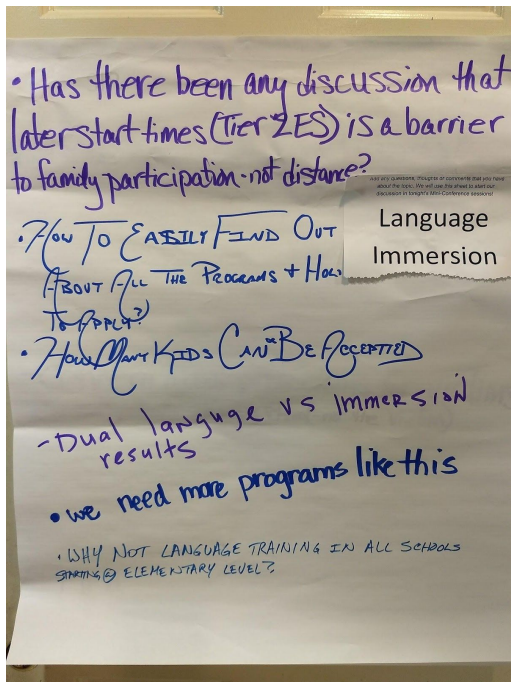 • Has there been any discussion that
later start times (Tier 2 ES) is a barrier
to family participation - not distance?
Add any questions, thoughts or comments that you have
about the topic. We will use this sheet to start our
discussion in tonight's Mini-Conference sessions!
Language
Immersion
• HOW TO EASILY FIND OUT
ABOUT ALL THE PROGRAMS + HOW
TO APPLY?
• HOW MANY KIDS CAN BE ACCEPTED
- Dual languge vs immersion
results
• we need more programs like this
• WHY NOT LANGUAGE TRAINING IN ALL SCHOOLS
STARTING @ ELEMENTARY LEVEL?